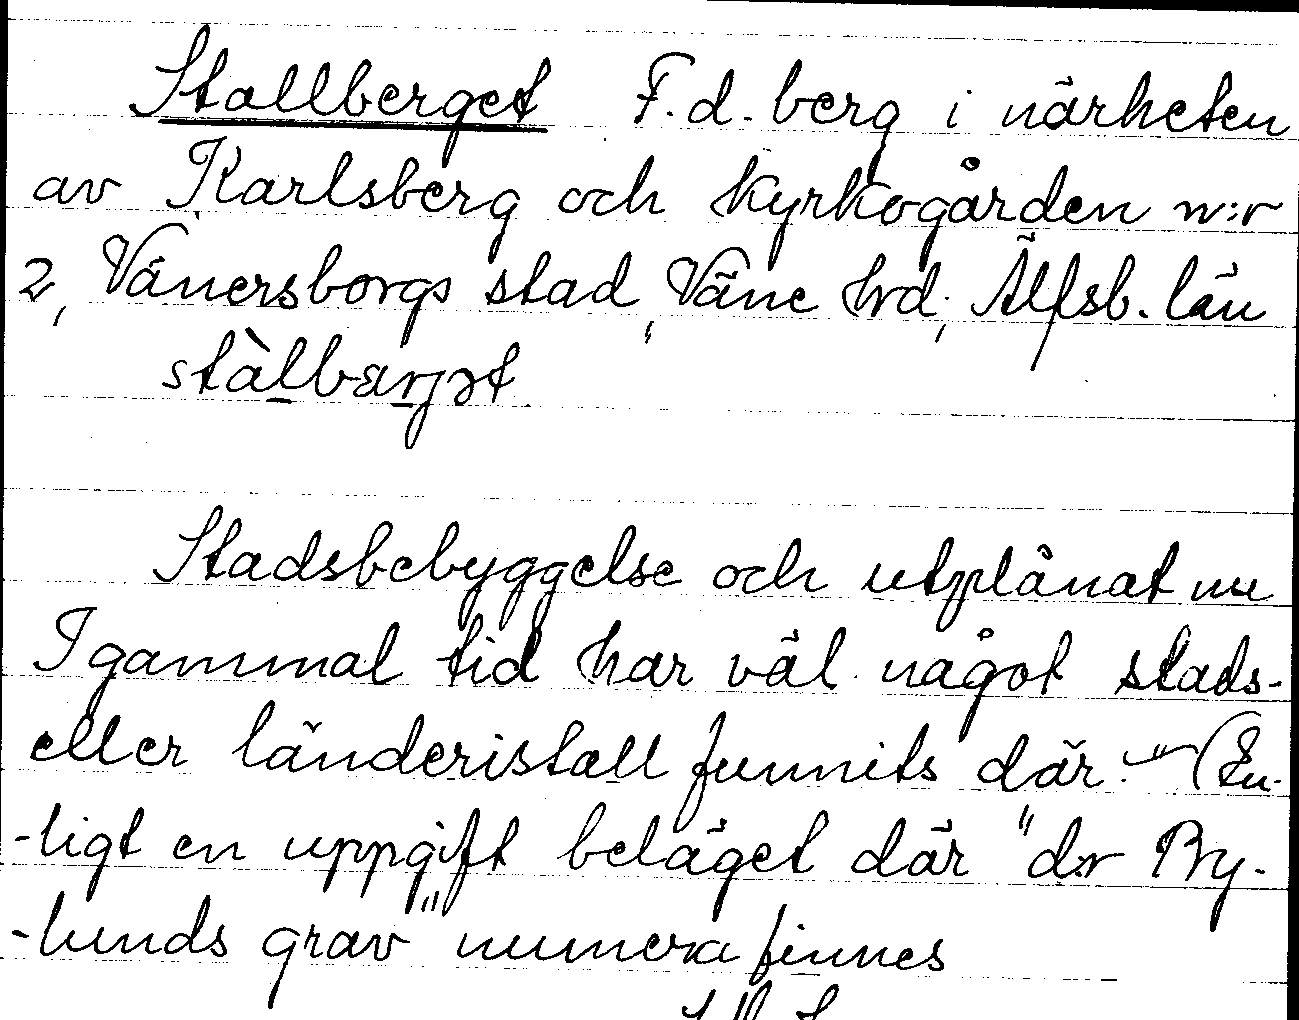 Stallberget F.d. berg i närheten
av Karlsberg och kyrkogården n:r
2, Vänersborgs stad, Väne hrd, Älfsb. län
stàlbærjət
Stadsbebyggelse och utplånat nu
I gammal tid har väl något stads-
eller länderistall funnits där. (En-
-ligt en uppgift beläget där "d:r Ry-
-lunds grav" numera finnes